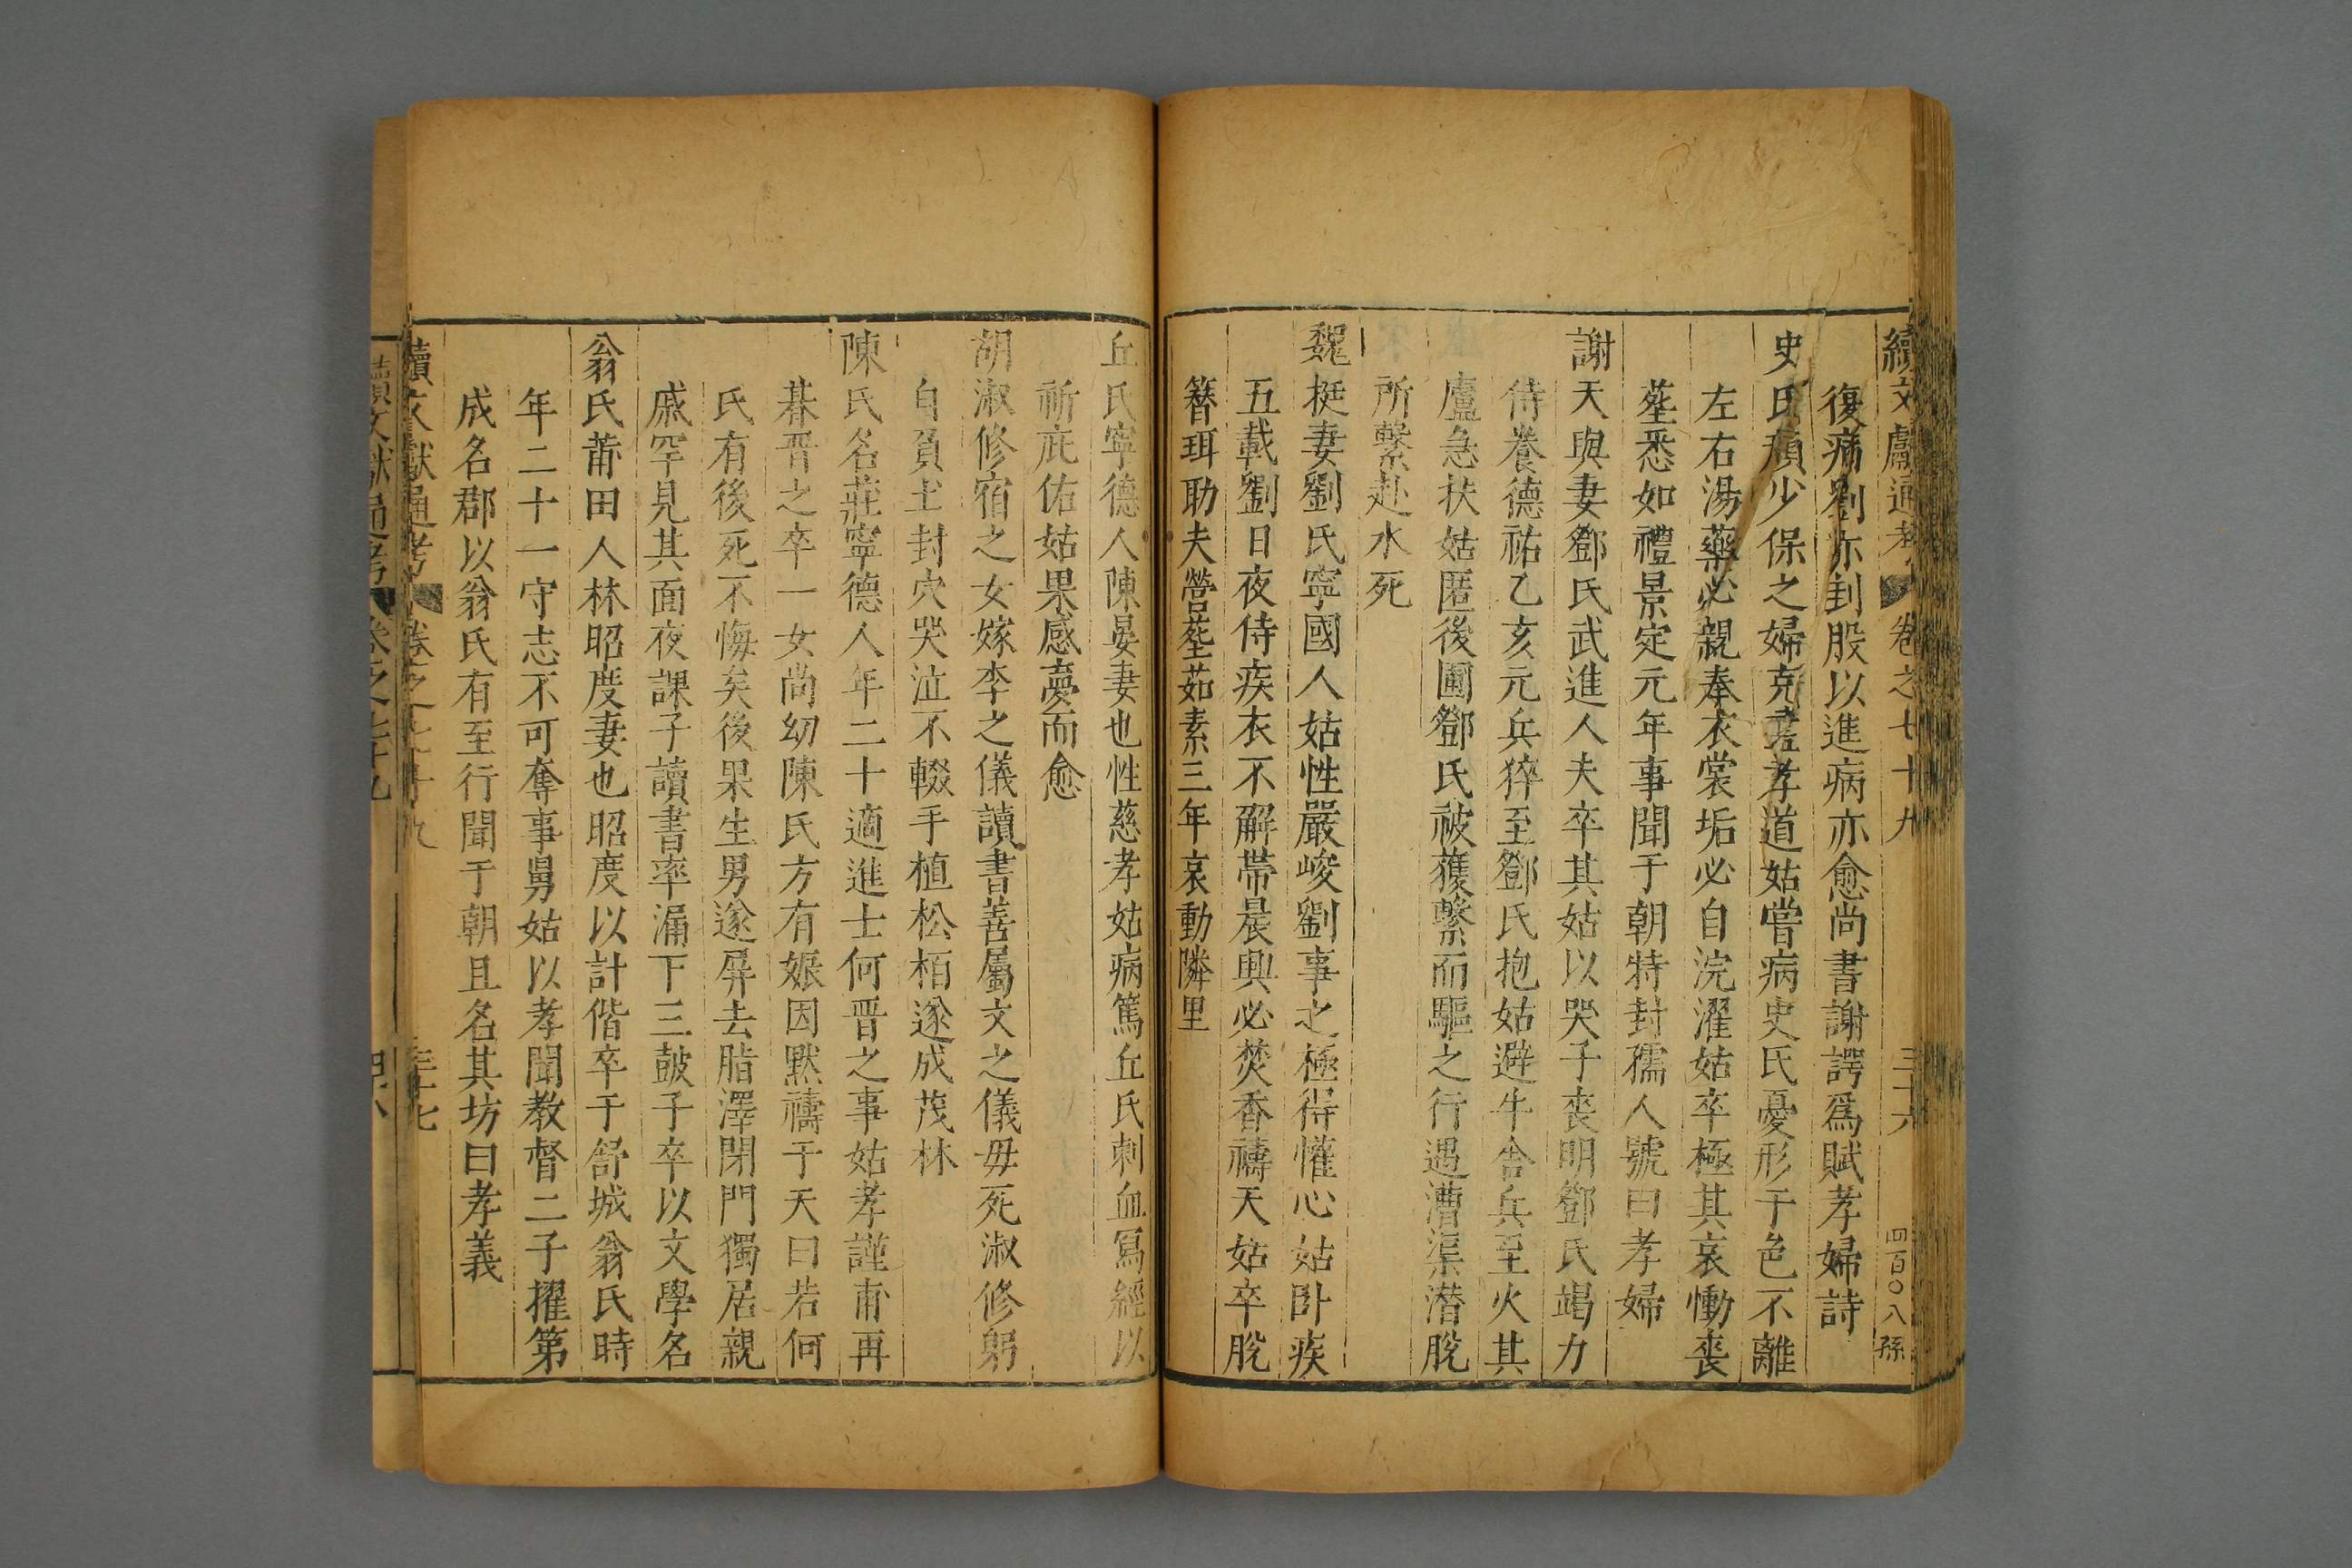 續文獻通考 卷之七十九 三十六 四百〇八 孫
復痛劉亦刲股以進病亦愈尚書謝諤爲賦孝婦詩
史氏頏少保之婦克盡孝道姑嘗病史氏憂形于色不離
左右湯藥必親奉衣裳垢必自浣濯姑卒極其哀慟喪
塟悉如禮景定元年事聞于朝特封孺人號曰孝婦
謝天與妻鄧氏武進人夫卒其姑以哭子喪明鄧氏竭力
侍養德祐乙亥元兵猝至鄧氏抱姑避牛舍兵至火其
廬急扶姑匿後圃鄧氏被獲繫而驅之行遇漕渠潜脫
所繫赴水死
魏梃妻劉氏寧國人姑性嚴峻劉事之極得懽心姑卧疾
五載劉日夜侍疾衣不解帶晨興必焚香禱天姑卒脫
簪珥助夫營塟茹素三年哀動隣里
丘氏寧德人陳晏妻也性慈孝姑病篤丘氏刺血寫經以
祈庇佑姑果感夢而愈
胡淑修宿之女嫁李之儀讀書善屬文之儀毋死淑修躬
自負土封穴哭泣不輟手植松栢遂成茂林
陳氏名莊寧德人年二十適進士何晋之事姑孝謹甫再
朞晋之卒一女尚幼陳氏方有娠因默禱于天曰若何
氏有後死不悔矣後果生男遂屏去脂澤閉門獨居親
戚罕見其面夜課子讀書率漏下三鼓子卒以文學名
翁氏莆田人林昭度妻也昭度以計偕卒于舒城翁氏時
年二十一守志不可奪事舅姑以孝聞教督二子擢第
成名郡以翁氏有至行聞于朝且名其坊曰孝義
續文獻通考 卷之七十九 三十七
續文獻通考 卷之七十九